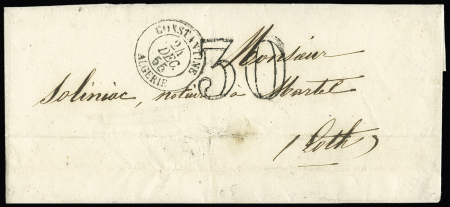 CONSTANTINE
24
DEC.
65
ALGERIE
30
Monsieur
Soliniac, notaire à Martel
(Loth)